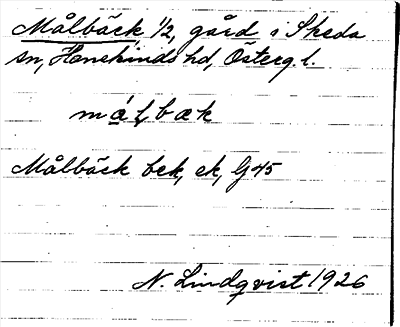 Målbäck 1/2, gård i Skeda
sn, Hanekinds hd, Österg. l.
málbæk
Målbäck bek, ek, G45
N. Lindqvist 1926